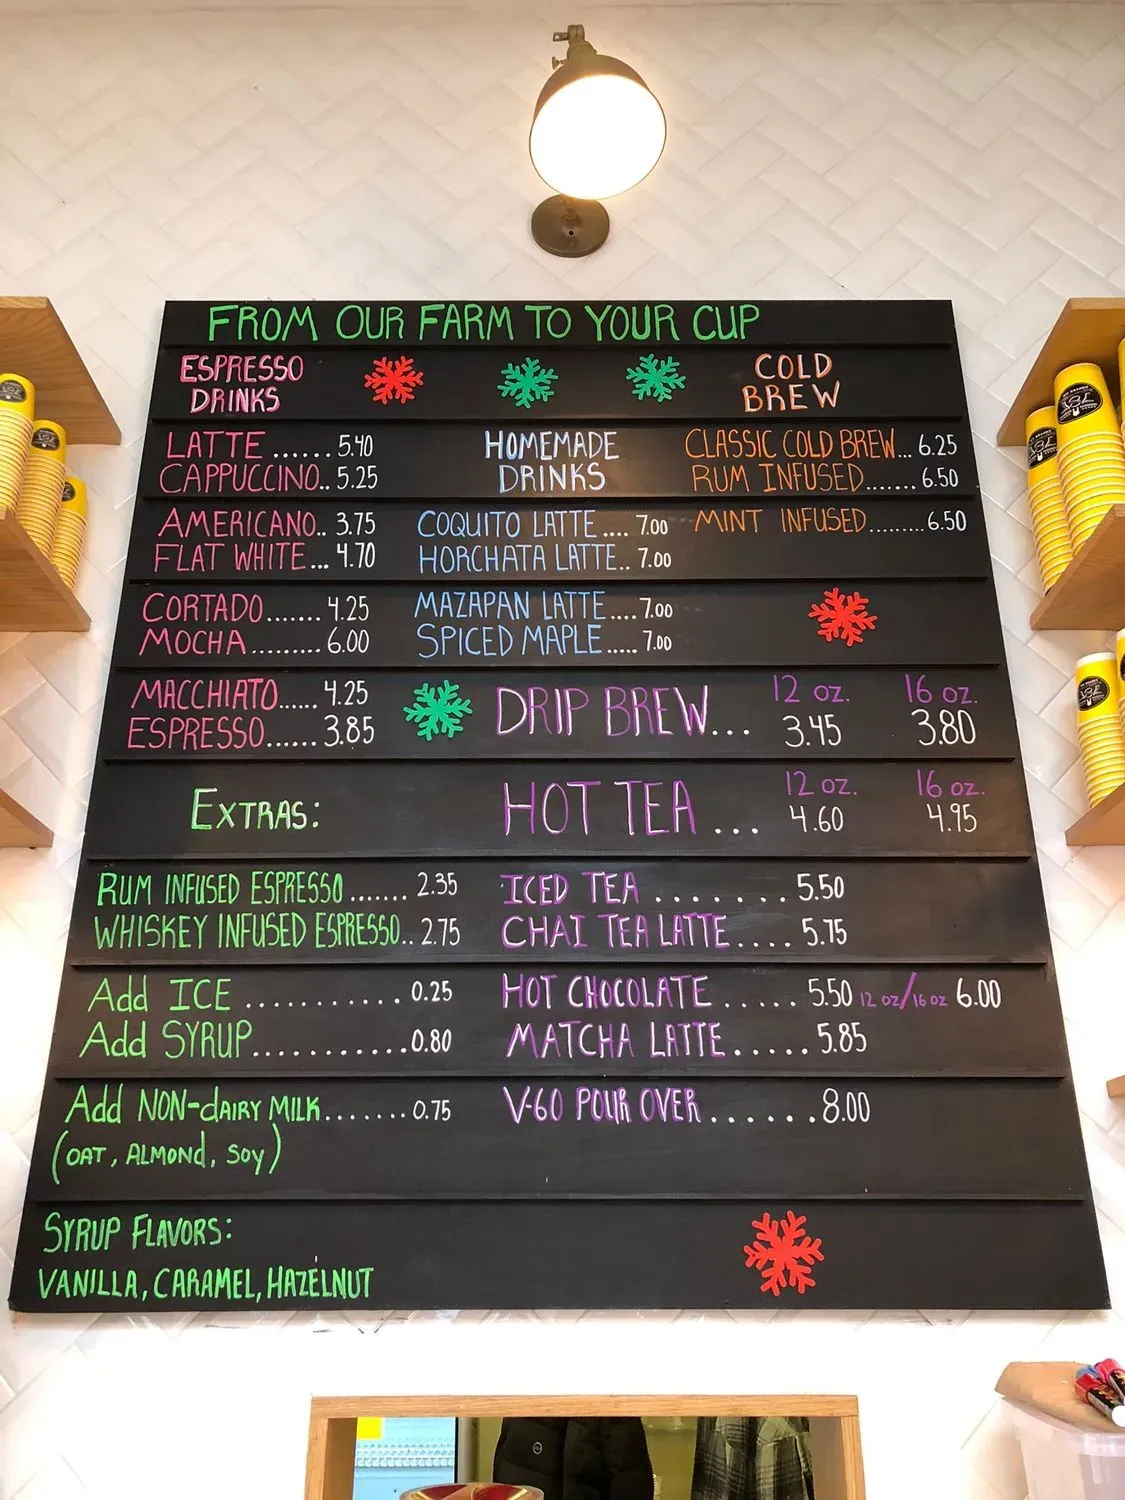 FROM OUR FARM TO YOUR CUP
ESPRESSO
DRINKS
LATTE ...... 5.40
CAPPUCCINO.. 5.25
AMERICANO.. 3.75
FLAT WHITE ... 4.70
CORTADO....... 4.25
MOCHA ......... 6.00
MACCHIATO...... 4.25
ESPRESSO...... 3.85
HOMEMADE
DRINKS
COQUITO LATTE .... 7.00
HORCHATA LATTE.. 7.00
MAZAPAN LATTE .... 7.00
SPICED MAPLE ..... 7.00
COLD
BREW
CLASSIC COLD BREW... 6.25
RUM INFUSED....... 6.50
MINT INFUSED......... 6.50
12 oz. 16 oz.
DRIP BREW... 3.45 3.80
12 oz. 16 oz.
HOT TEA ... 4.60 4.95
ICED TEA ........ 5.50
CHAI TEA LATTE.... 5.75
HOT CHOCOLATE ..... 5.50 12 oz/16 oz 6.00
MATCHA LATTE ..... 5.85
V-60 POUR OVER ...... 8.00
EXTRAS:
RUM INFUSED ESPRESSO....... 2.35
WHISKEY INFUSED ESPRESSO.. 2.75
Add ICE ........... 0.25
Add SYRUP........... 0.80
Add NON-dAIRY MILK....... 0.75
(OAT, ALMOND, SOY)
SYRUP FLAVORS:
VANILLA, CARAMEL, HAZELNUT